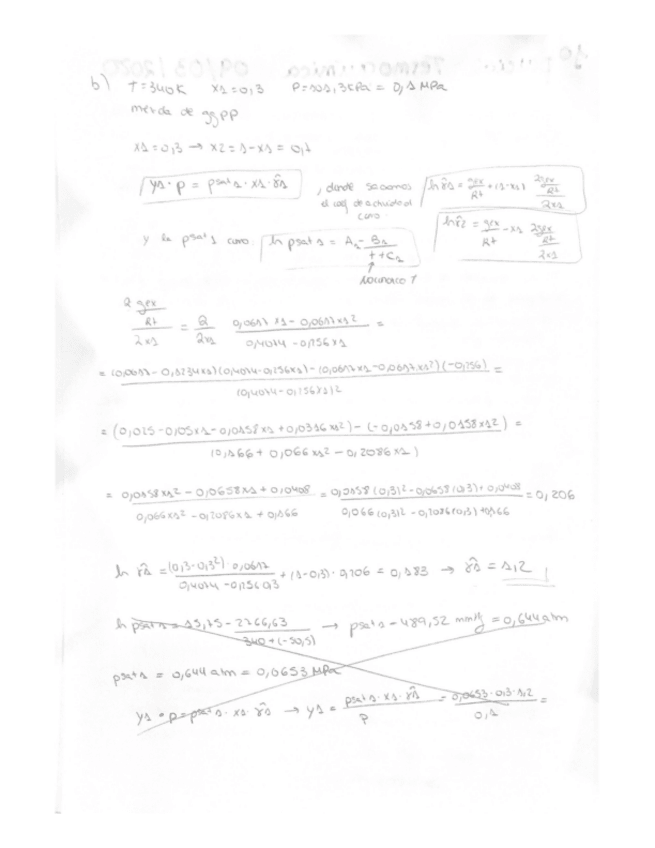 b) T=340K x1=0,3 P=101,3KPa = 0,1 MPa
x1=0,3 → x2=1-x1=0,7
y1·p = psat1·x1·γ̂1 , donde sacamos el coef de actividad como: ln γ̂1 = gex/RT + (1-x1) ∂gex/RT/∂x1
ln γ̂2 = gex/RT - x1 ∂gex/RT/∂x1
y la psat1 como ln psat1 = A1 - B1/t+C1
∂ gex/Rt / ∂x1 = ∂/∂x1 0,0617x1 - 0,0617x1²/0,4074 - 0,256x1 =
= (0,0617 - 0,1234x1)(0,4074-0,256x1) - (0,0617x1-0,0617x1²)(-0,256)/(0,4074-0,256x1)2 =
= (0,025-0,05x1-0,0158x1+0,0316x1²) - (-0,0158+0,0158x1²)/(0,166+0,066x1²-0,2086x1) =
= 0,0158x1² - 0,0658x1 + 0,0408/0,066x1²-0,2086x1+0,166 = 0,0158(0,3)²-0,0658(0,3)+0,0408/0,066(0,3)²-0,2086(0,3)+0,166 = 0,206
ln γ̂1 = (0,3-0,3²)·0,0617/0,4074-0,256·0,3 + (1-0,3)·0,206 = 0,183 → γ̂1 = 1,2
ln psat1 = 15,75 - 2766,63/340+(-50,5) → psat1 = 489,52 mmHg = 0,644 atm
psat1 = 0,644 atm = 0,0653 MPa
y1·p = psat1·x1·γ̂1 → y1 = psat1·x1·γ̂1/p = 0,0653·0,3·1,2/0,1 =